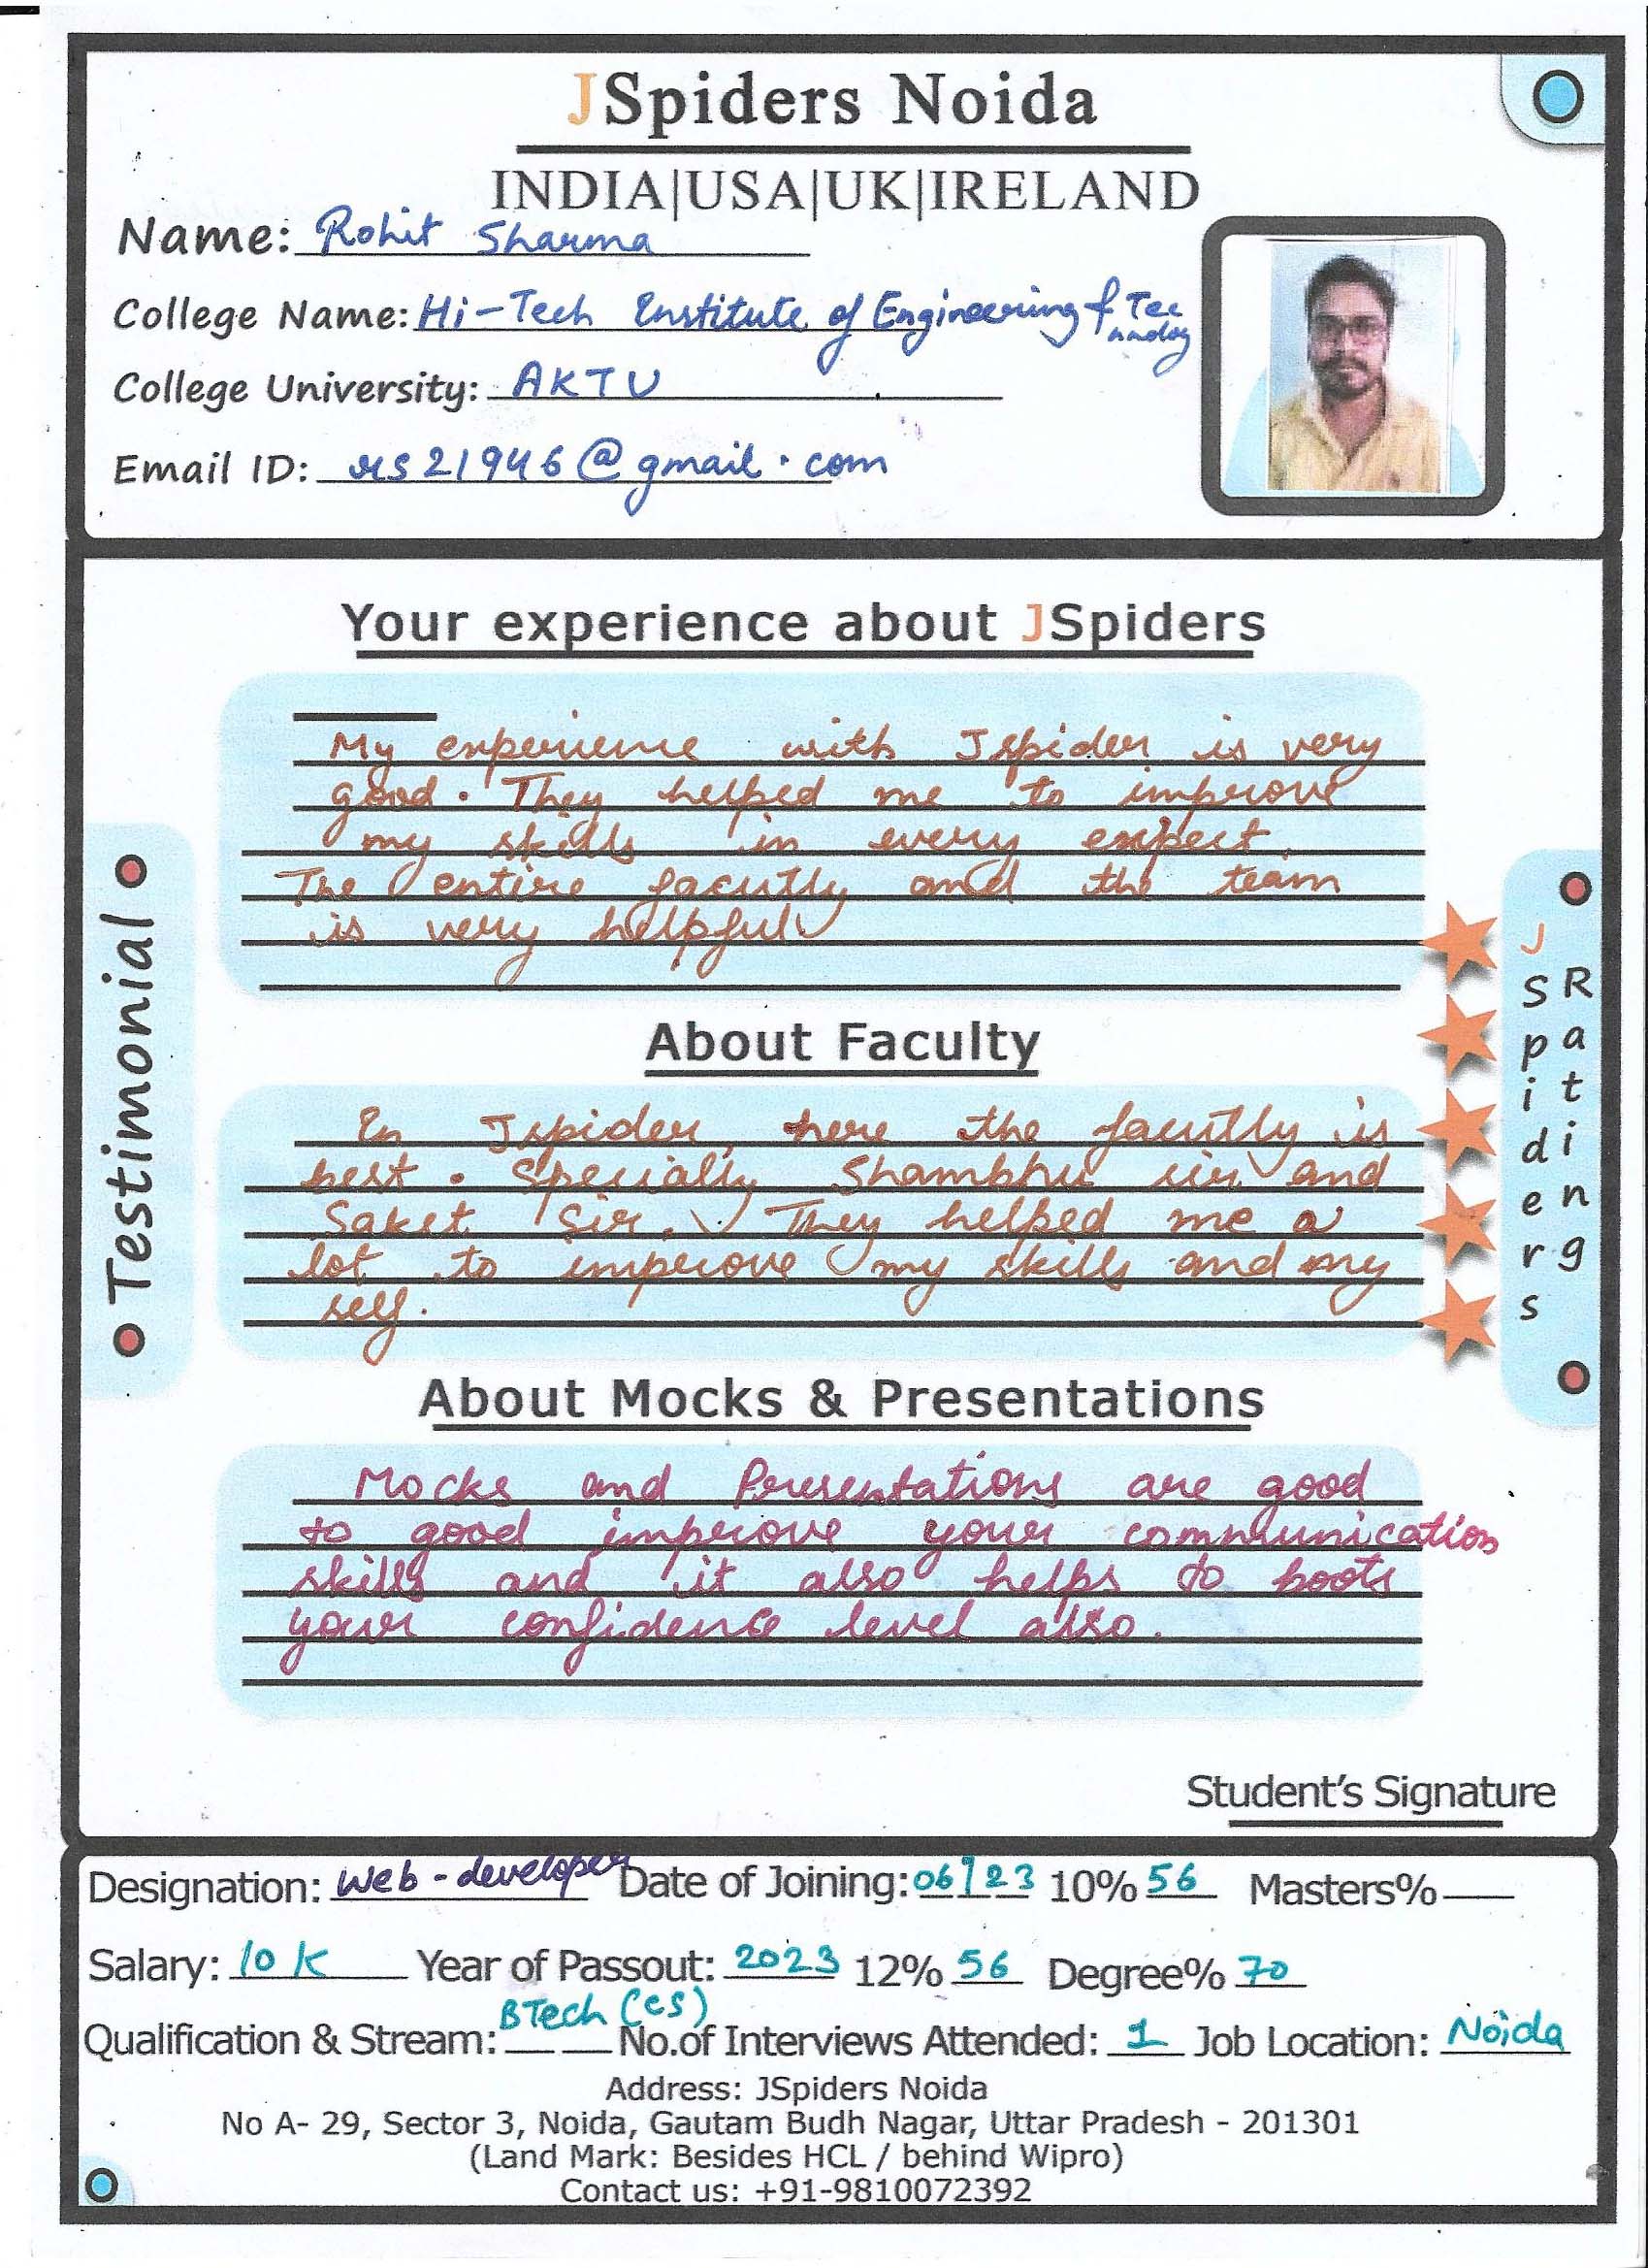 JSpiders Noida
INDIA|USA|UK|IRELAND
Name: Rohit Sharma
College Name: Hi-Tech Institute of Engineering & Tec
hnology
College University: AKTU
Email ID: rs21946@gmail.com
Your experience about JSpiders
My experience with Jspider is very
good. They helped me to improve
my skills in every expect.
The entire facutlly and the team
is very helpful
About Faculty
In Jspider, here the facutlly is
best. Specially Shambhu sir and
Saket Sir. They helped me a
lot to improve my skills and my
self.
About Mocks & Presentations
Mocks and Presentations are good
to good improve your communication
skills and it also helps to boots
your confidence level also.
Testimonial
JSpiders
Rating
Student's Signature
Designation: Web-developer Date of Joining: 06/23 10% 56 Masters%
Salary: 10 K Year of Passout: 2023 12% 56 Degree% 70
Qualification & Stream: BTech (CS) No.of Interviews Attended: 1 Job Location: Noida
Address: JSpiders Noida
No A- 29, Sector 3, Noida, Gautam Budh Nagar, Uttar Pradesh - 201301
(Land Mark: Besides HCL / behind Wipro)
Contact us: +91-9810072392